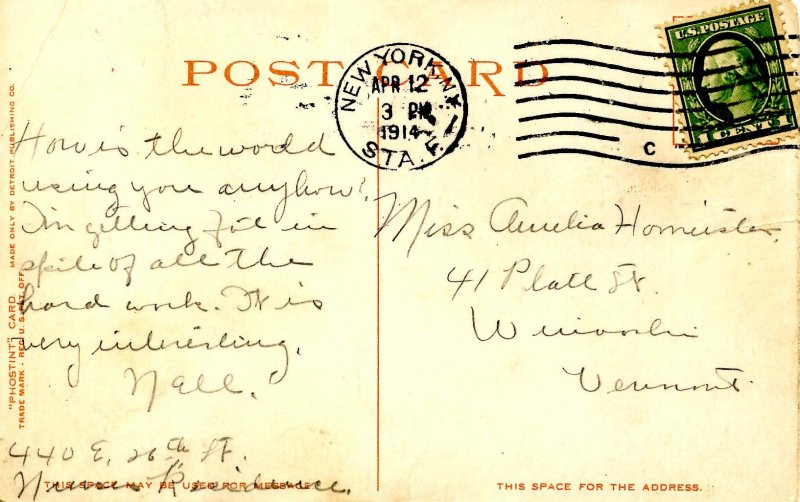 POST CARD
NEW YORK, N.Y.
APR 12
3 PM
1914
STA. F.
C
U.S. POSTAGE
1 CENT 1
How is the world
using you anyhow?
I'm getting fat in
spite of all the
hard work. It is
very interesting.
Nell.
440 E. 26th St.
Nurses Residence.
Miss Amelia Homeister,
41 Platt St.
Winooski
Vermont.
"PHOSTINT" CARD MADE ONLY BY DETROIT PUBLISHING CO.
TRADE MARK - REG. U.S. PAT. OFF.
THIS SPACE MAY BE USED FOR MESSAGE
THIS SPACE FOR THE ADDRESS.